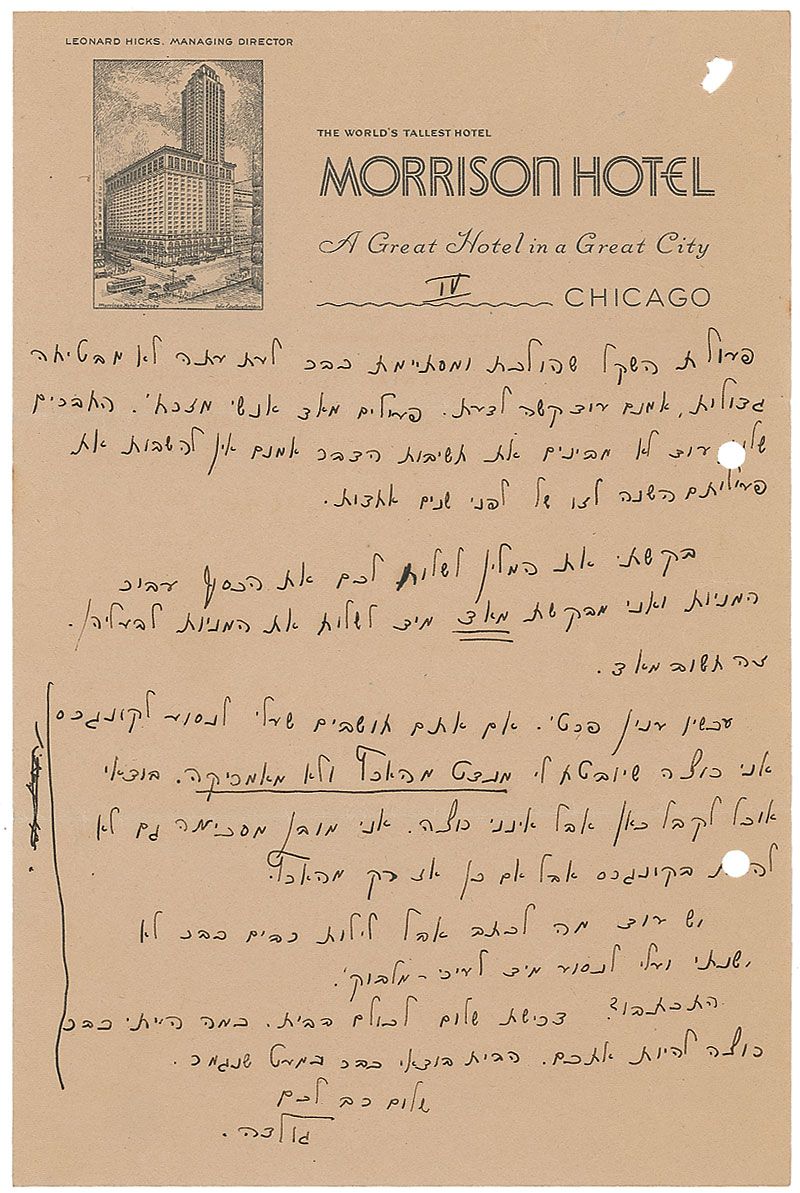 LEONARD HICKS, MANAGING DIRECTOR
THE WORLD'S TALLEST HOTEL
MORRISON HOTEL
A Great Hotel in a Great City
IV
CHICAGO
פעולת השקל שהולכת ומסתיימת כבר לעת עתה לא מבטיחה
גדולות, אמנם עוד קשה לדעת. פעילים מאד אנשי מזרחי. החברים
שלנו עוד לא מבינים את חשיבות הדבר אמנם אין להשוות את
פעילותם השנה לזו של לפני שנים אחדות.
בקשתי את המלין לשלוח לכם את הכסף עבור
המניות ואני מבקשת מאד מיד לשלוח את המניות לבעליהן.
זה חשוב מאד.
עכשיו ענין פרטי. אם אתם חושבים שעלי לנסוע לקונגרס
אני רוצה שיובטח לי מנדט מהארץ ולא מאמריקה. בודאי
אוכל לקבל כאן אבל אינני רוצה. אני מובן מסכימה גם לא
להיות בקונגרס אבל אם כן אז רק מהארץ.
יש עוד מה לכתב אבל לילות רבים כבר לא
ישנתי ועלי לנסוע מיד לעיר-מלבוקי.
התכתבו? דרישת שלום לכולם בבית. כמה הייתי כבר
רוצה להיות אתכם. הבית בודאי כבר כמעט שנגמר.
שלום רב לכם
גולדה.